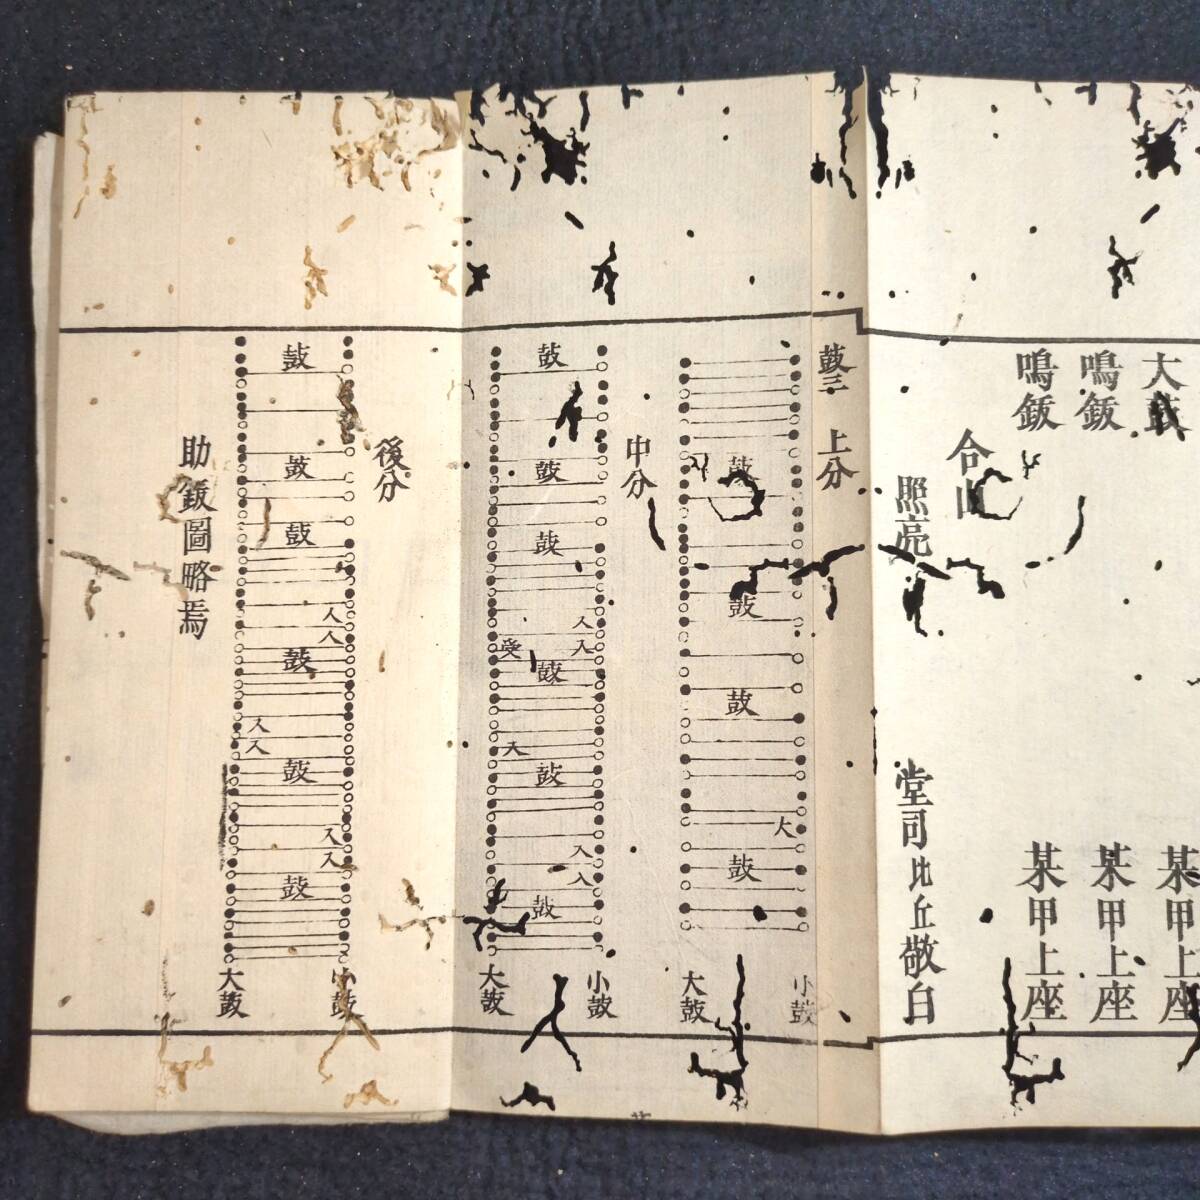 大鼓 某甲上座
鳴鈸 某甲上座
鳴鈸 某甲上座
合山
照亮 堂司比丘敬白
鼓三 上分
小鼓
鼓
鼓
鼓
大
鼓
大鼓
中分
小鼓
鼓
鼓
鼓
入
入
鼓
鼓
入
入
鼓
受
大
大鼓
後分
小鼓
鼓
鼓
鼓
入
入
鼓
入
入
鼓
入
入
鼓
大鼓
助鈸圖略焉